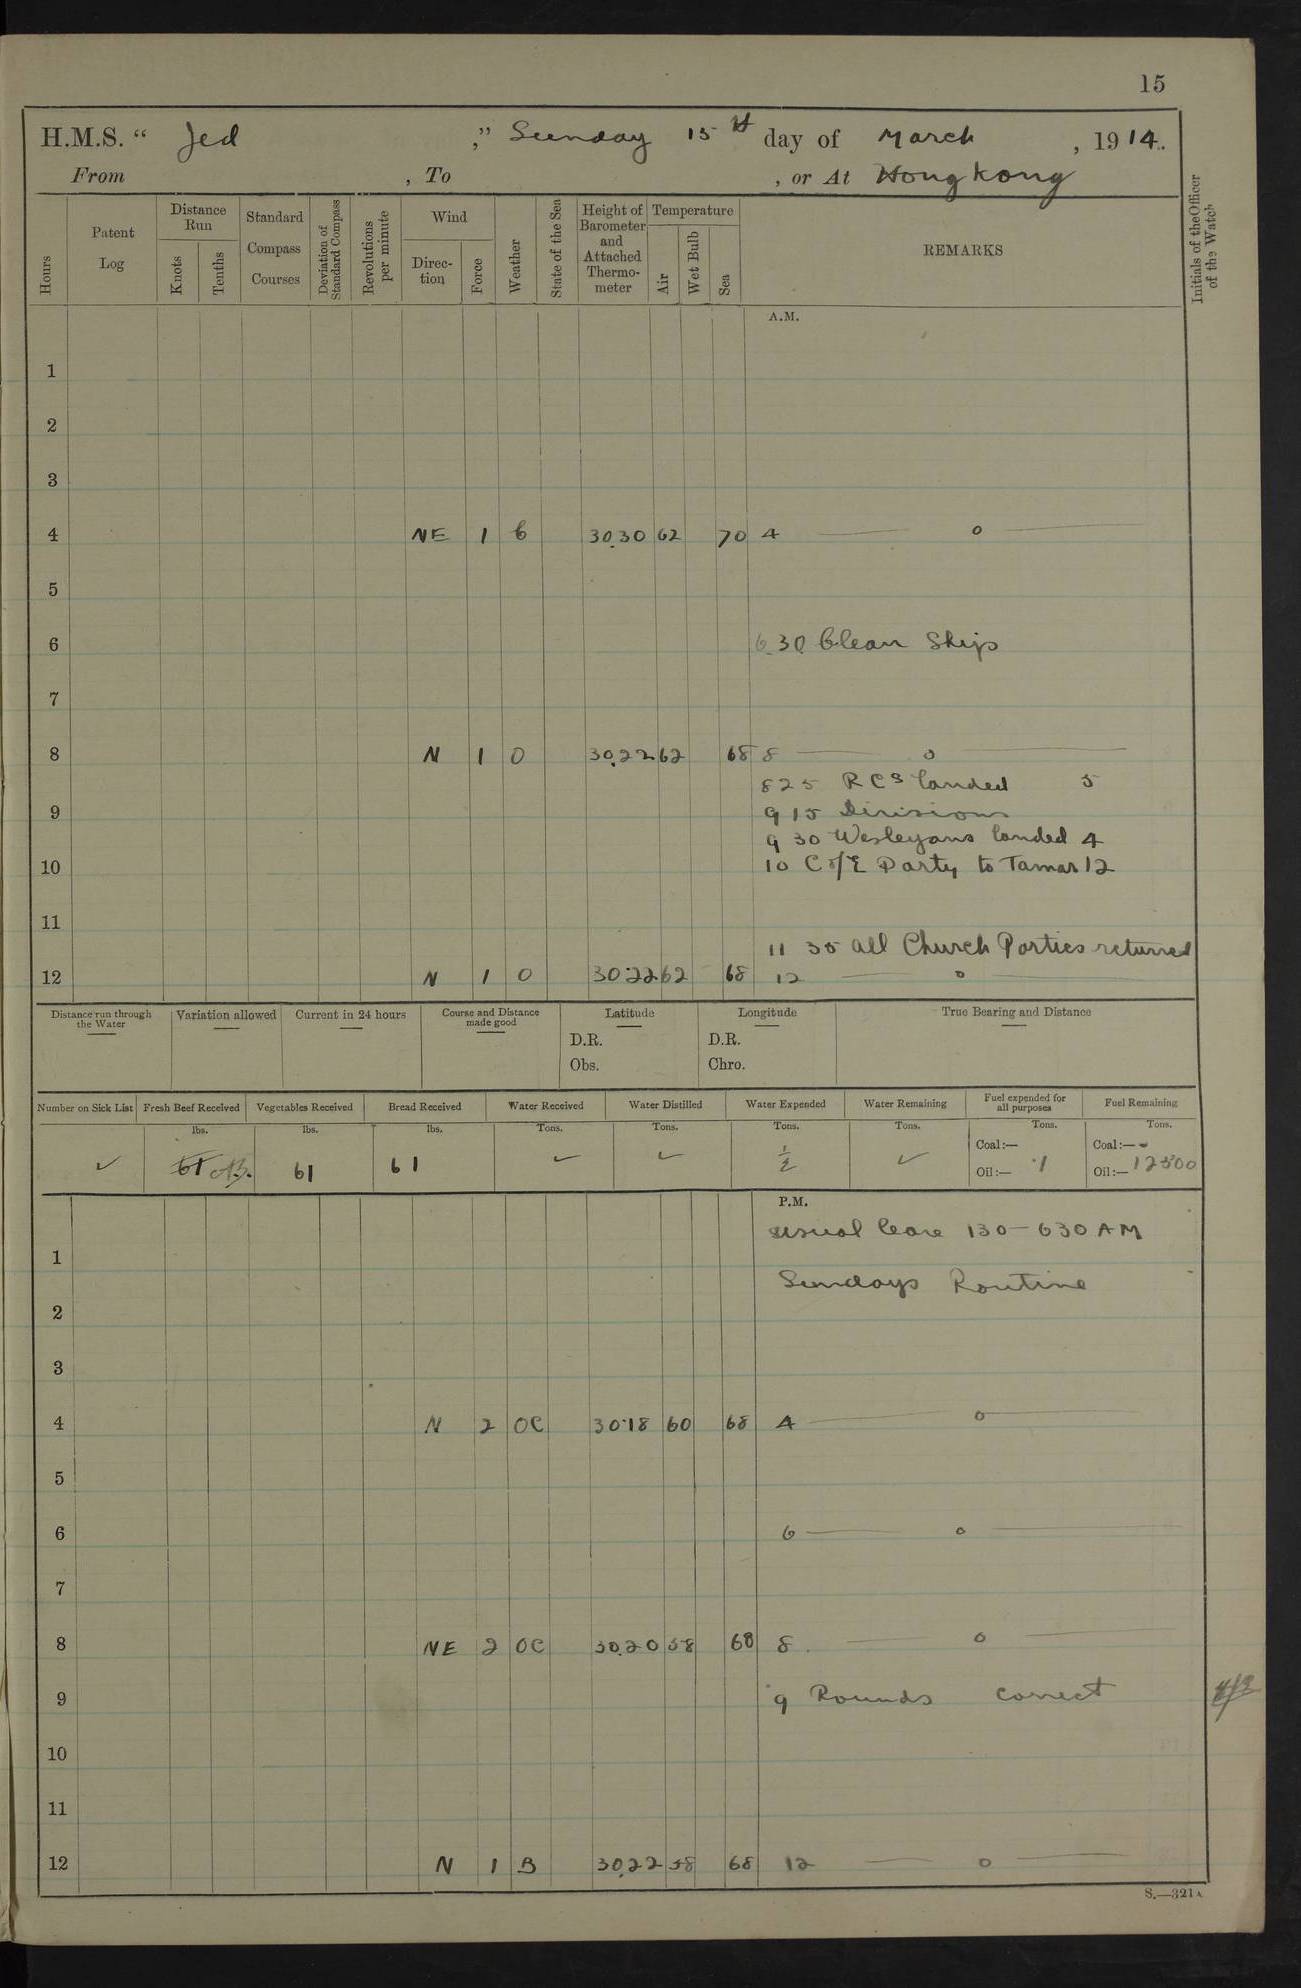 15
H.M.S. “ Jed ,” Sunday 15th day of March , 1914.
From , To , or At Hong Kong
Hours Patent Log Distance Run Knots Tenths Standard Compass Courses Deviation of Standard Compass Revolutions per minute Wind Direction Force Weather State of the Sea Height of Barometer and Attached Thermometer Temperature Air Wet Bulb Sea REMARKS Initials of the Officer of the Watch
A.M.
1
2
3
4 NE 1 b 30.30 62 70 4 — o —
5
6 6.30 Clean Ships
7
8 N 1 O 30.22 62 68 8 — o —
8 25 RCs landed 5
9 9 15 Divisions
9 30 Wesleyans landed 4
10 10 C of E Party to Tamar 12
11
11 35 All Church Parties returned
12 N 1 O 30.22 62 68 12 — o —
Distance run through the Water Variation allowed Current in 24 hours Course and Distance made good Latitude Longitude True Bearing and Distance
D.R. D.R.
Obs. Chro.
Number on Sick List Fresh Beef Received Vegetables Received Bread Received Water Received Water Distilled Water Expended Water Remaining Fuel expended for all purposes Fuel Remaining
lbs. lbs. lbs. Tons. Tons. Tons. Tons. Tons. Tons.
Coal:— Coal:— -
✓ 61 61 61 ✓ ✓ ½ ✓ Oil:— ·1 Oil:— 12500
P.M.
usual leave 130 — 630 AM
1
Sundays Routine
2
3
4 N 2 OC 30.18 60 68 4 — o —
5
6 6 — o —
7
8 NE 2 OC 30.20 58 68 8 — o —
9 9 Rounds correct
10
11
12 N 1 B 30.22 58 68 12 — o —
S.—321A